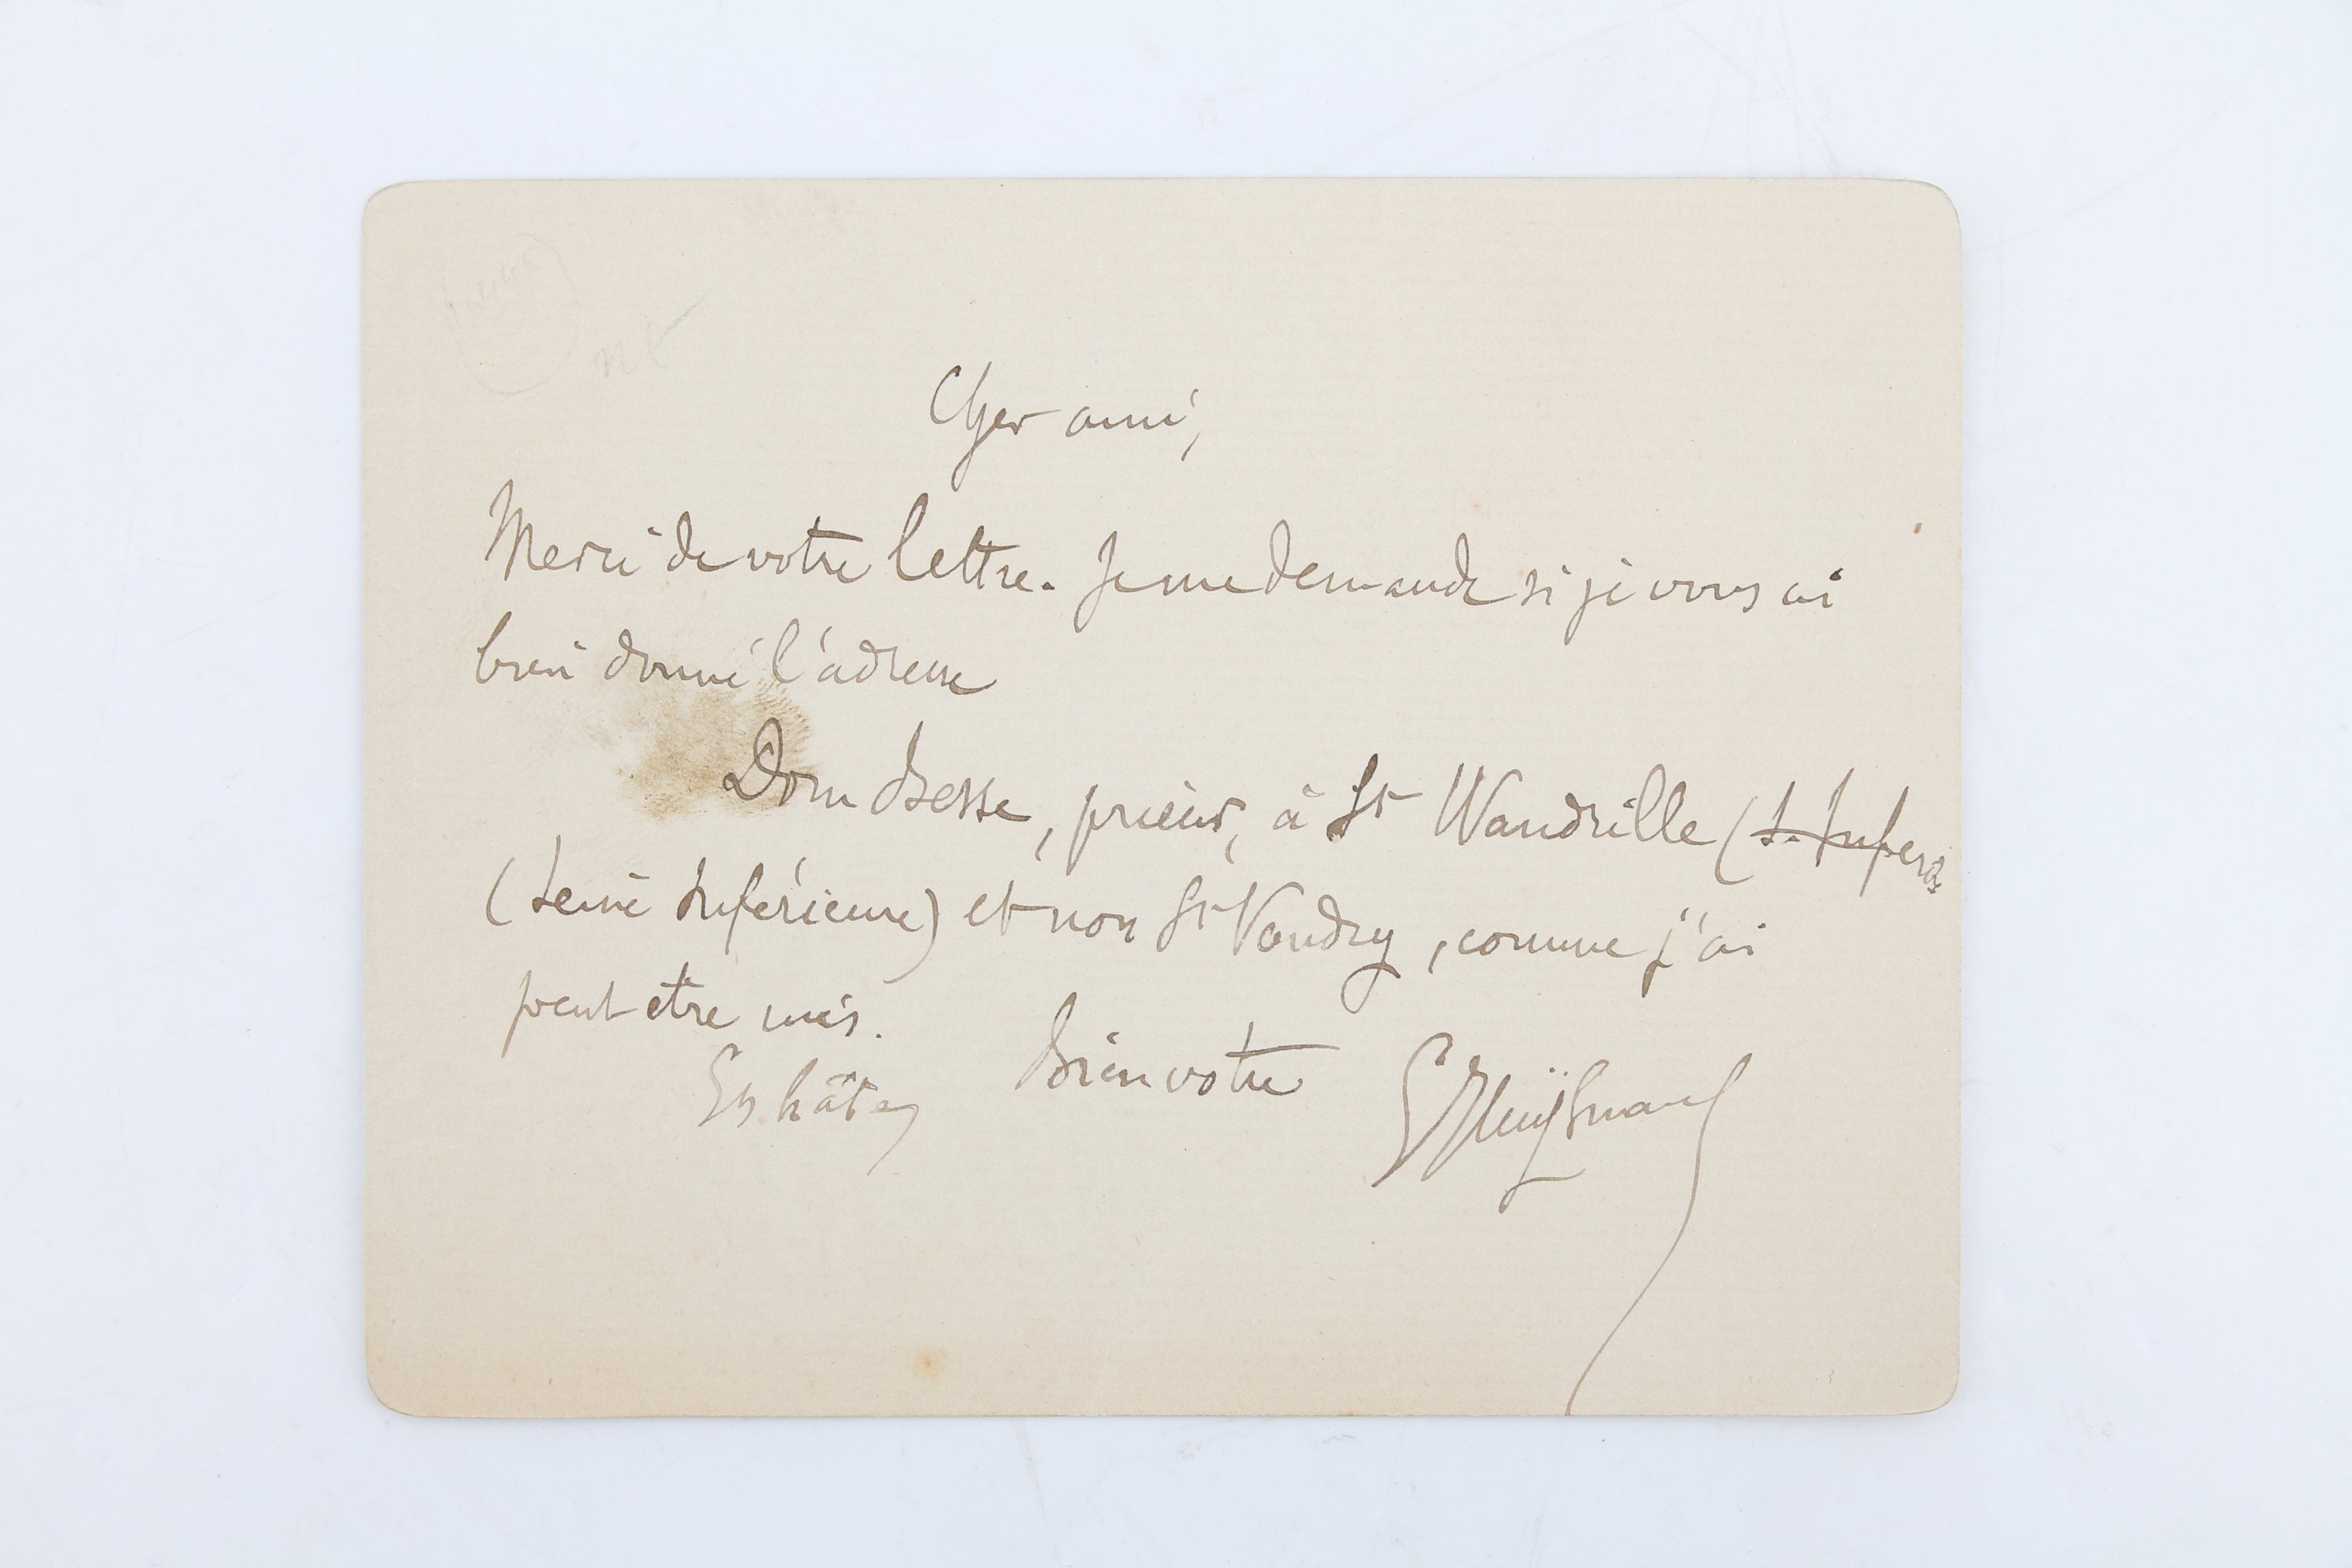 Cher ami,
Merci de votre lettre. Je me demande si je vous ai
bien donné l'adresse
Dom Besse, prieur, à St Wandrille (S. Inférie
(Seine Inférieure) et non St Vandry, comme j'ai
peut etre mis.
En hâte, Bien votre
G Huÿsmans